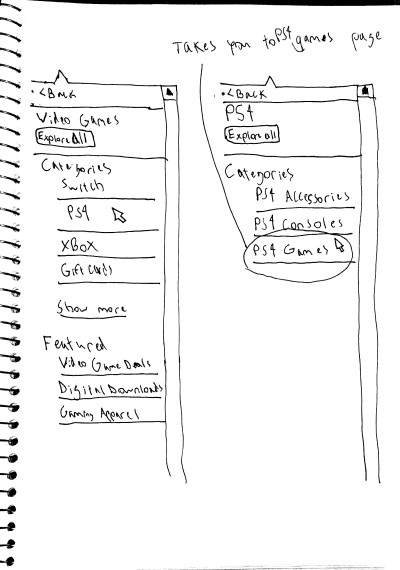 Takes you to PS4 games page
<Back
Video Games
Explore All
Categories
Switch
PS4
XBOX
Gift Cards
Show more
Featured
Video Game Deals
Digital Downloads
Gaming Apparel
<Back
PS4
Explore all
Categories
PS4 Accessories
PS4 Consoles
PS4 Games